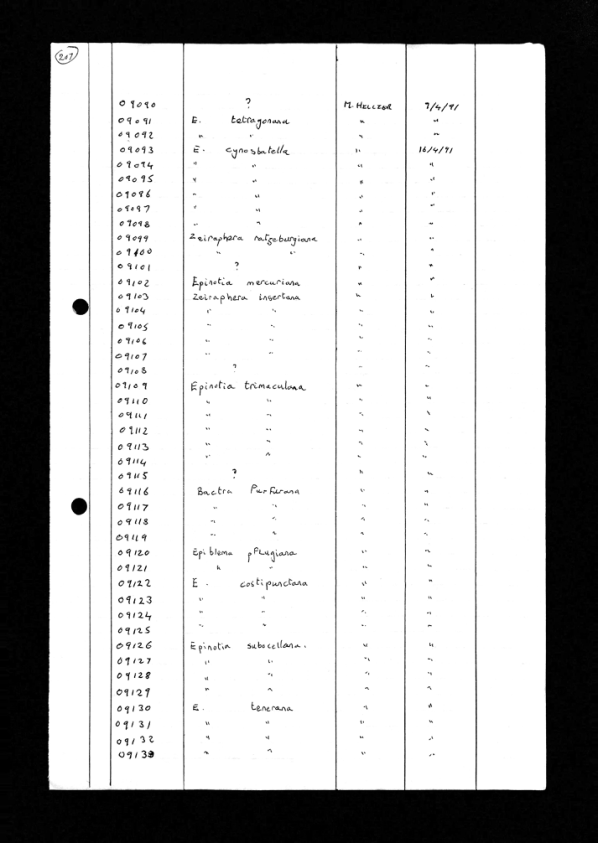 217
09090 ? M. HELLZER 9/4/91
09091 E. tetragonana " "
09092 " " " "
09093 E. cynosbatella " 16/4/91
09094 " " " "
09095 " " " "
09096 " " " "
09097 " " " "
09098 " " " "
09099 Zeiraphera ratzeburgiana " "
09100 " " " "
09101 ? " "
09102 Epinotia mercuriana " "
09103 Zeiraphera insertana " "
09104 " " " "
09105 " " " "
09106 " " " "
09107 " " " "
09108 ? " "
09109 Epinotia trimaculana " "
09110 " " " "
09111 " " " "
09112 " " " "
09113 " " " "
09114 " " " "
09115 ? " "
09116 Bactra Furfurana " "
09117 " " " "
09118 " " " "
09119 " " " "
09120 Epiblema pflugiana " "
09121 " " " "
09122 E. costipunctana " "
09123 " " " "
09124 " " " "
09125 " " " "
09126 Epinotia subocellana. " "
09127 " " " "
09128 " " " "
09129 " " " "
09130 E. tenerana " "
09131 " " " "
09132 " " " "
09133 " " " "